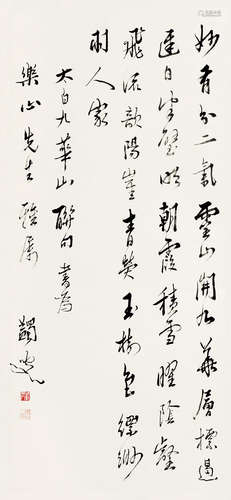 妙有分二氣靈山開九華層標遏
遲日半壁明朝霞積雪曜陰壑
飛流歕陽崖青熒玉樹色縹緲
羽人家
太白九華山聯句書爲
樂心先生雅屬